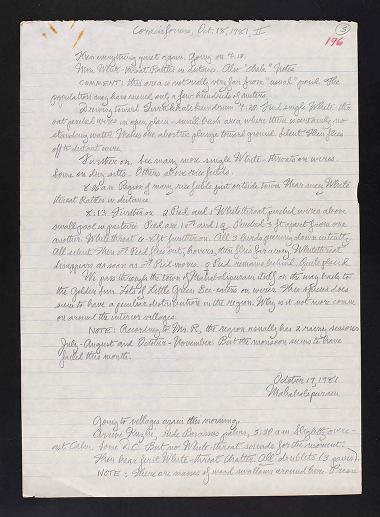 Coraciiformes, Oct. 18, 1981, II
3
196
Then everything quiet again. Going on 4:10.
More White-throat Rattles in distance. Also "Chale" Notes
COMMENT: this area is not really very far from "usual" pond. The
population may have moved, only a few hundreds of meters.
Driving toward 4:20. Find single White-thr.
oat perched wires in open place - small bush area where there is certainly no
standing water. Makes one abortive plunge toward ground. Silent. Then flies
off to distant wire.
Further on. See many more single White-throats on wires.
Some on dry sites. Others above rice fields.
Region of more rice fields just outside town. Hear many White
throat Rattles in distance
5:13. Further on. 2 Pied and 1 Whitethroat perched wires above
small pool in pasture. Pied are 1♂ and 1♀. Perched 3 ft apart from one
another. Whitethroat 6-8 ft further on. All 3 birds peering down intently.
All silent. Then ♂ Pied flies out, hovers, then flies far away. Whitethroat
disappears as soon as ♂ Pied moves. ♀ Pied remains behind. Quite placid.
We pass through the town of Mahabalipuram itself on the way back to
the Golden Sun. Lots of Little Green Bee-eaters on wires. This species does
seem to have a peculiar distribution in the region. Why is it not more common
on around the interior villages.
NOTE: According to Mr. R., the region usually has 2 rainy seasons
July-August and October-November. But the monsoon seems to have
failed this month.
October 19, 1981
Mahabalipuram
Going to villages again this morning.
Arrive Borassus palms, 5:50 a.m. Slightly over-
cast. Calm. Some But no White-throat sounds for the moment.
Then hear first White-throat Chatter. All doublets (3 pairs).
NOTE: There are masses of wood swallows around here. Praise